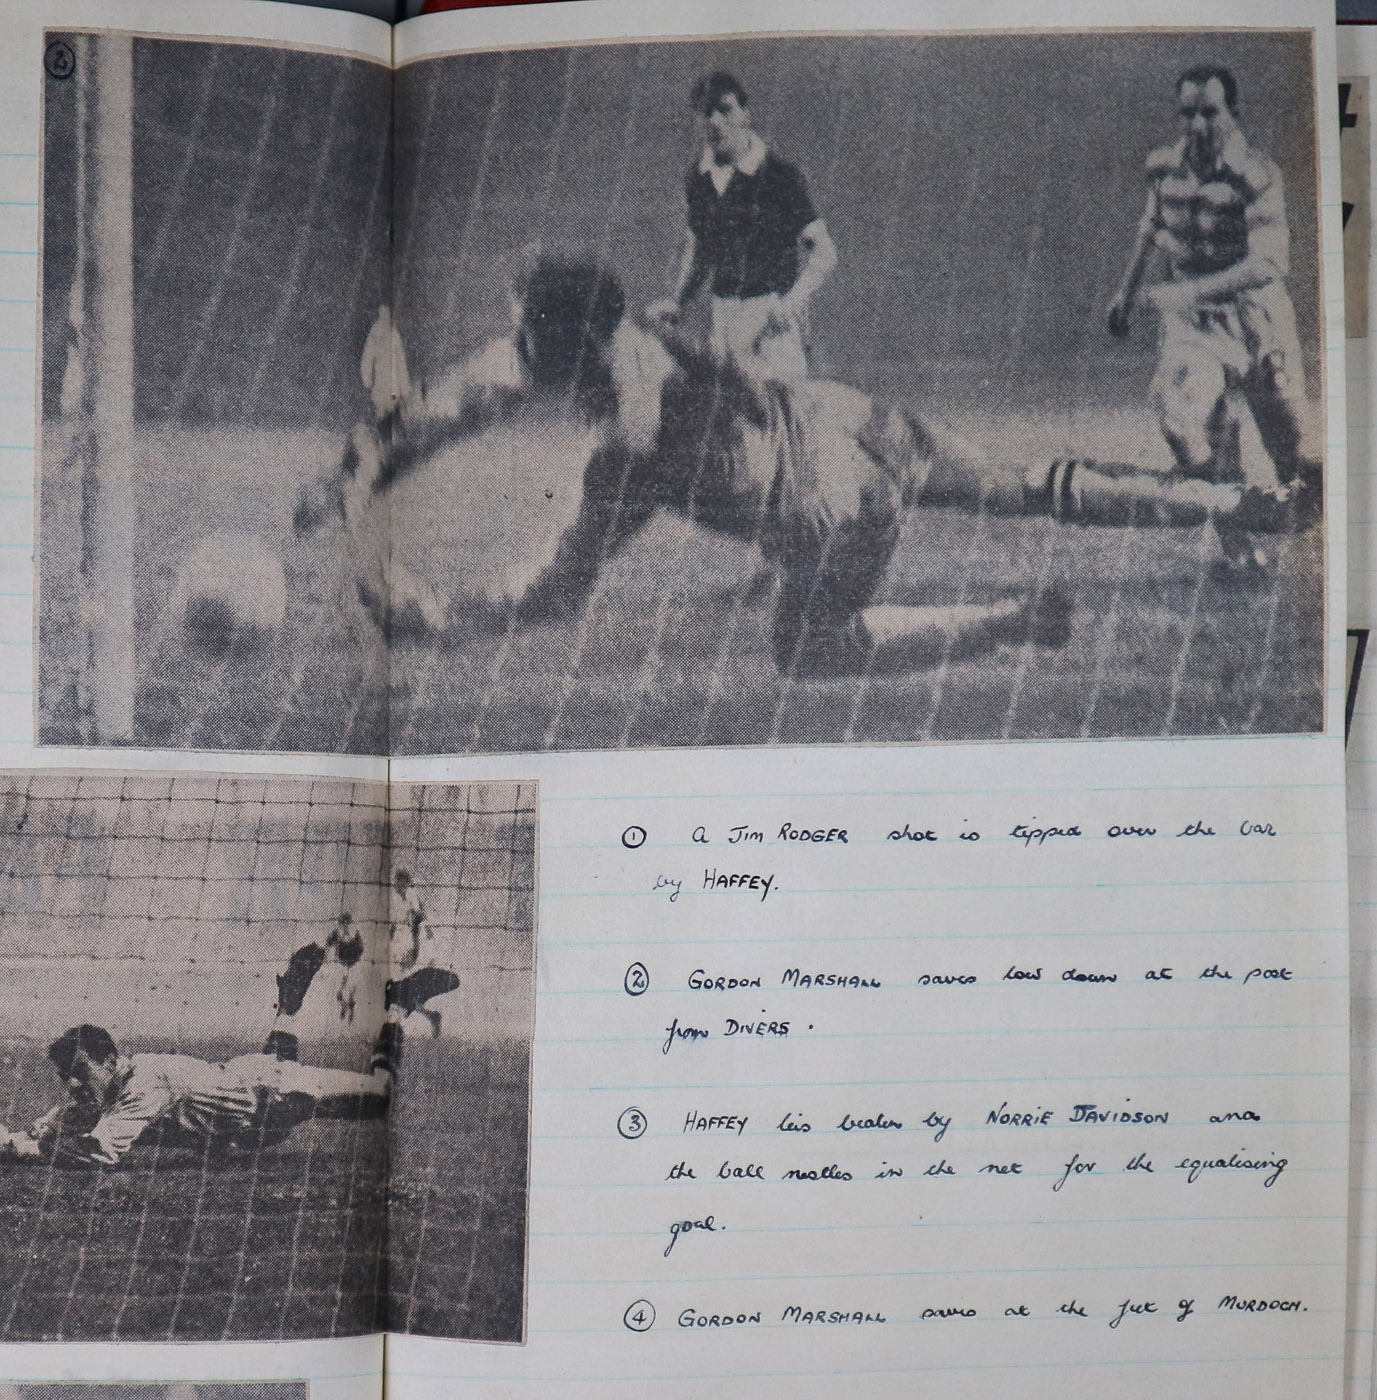 2
① A JIM RODGER shot is tipped over the bar
by HAFFEY.
② GORDON MARSHALL saves low down at the post
from DIVERS.
③ HAFFEY lies beaten by NORRIE DAVIDSON and
the ball nestles in the net for the equalising
goal.
④ GORDON MARSHALL saves at the feet of MURDOCH.